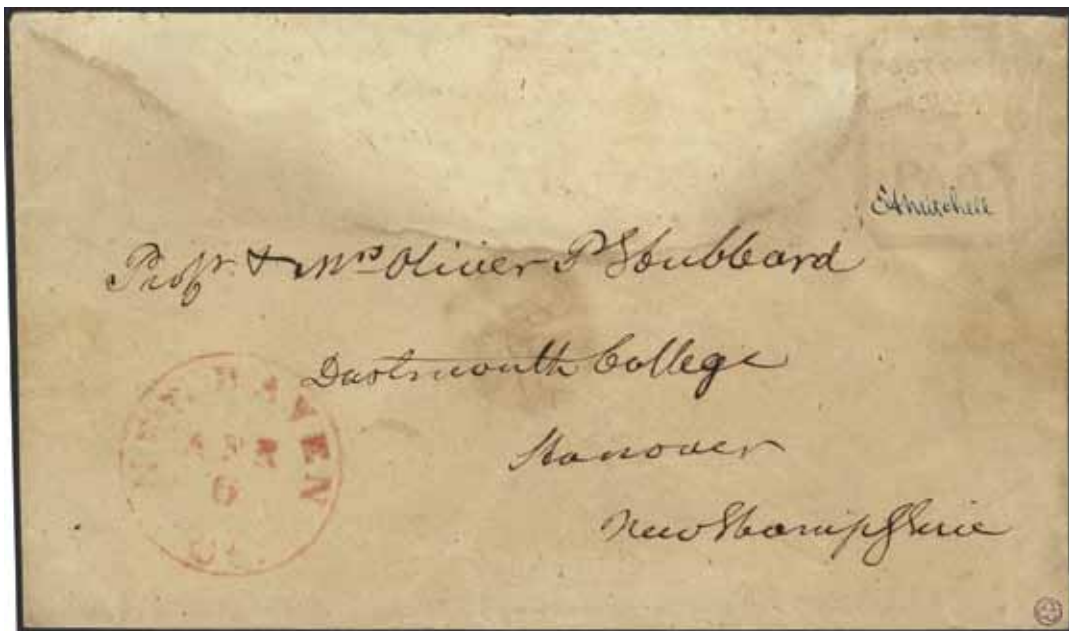 POST OFFICE
E A Mitchell
Profr. & Mrs Oliver P Hubbard
Dartmouth College
Hanover
New Hampshire
NEW HAVEN
APR
6
CT.